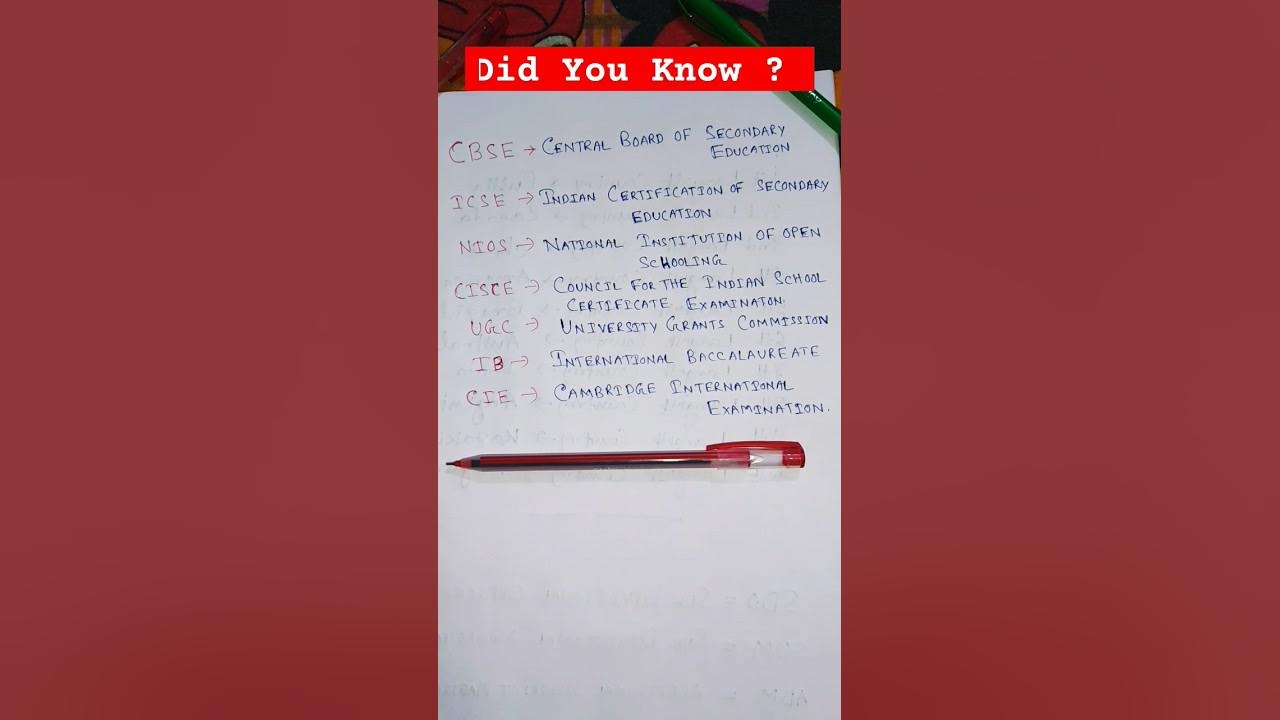 Did You Know ?
CBSE → CENTRAL BOARD OF SECONDARY
EDUCATION
ICSE → INDIAN CERTIFICATION OF SECONDARY
EDUCATION
NIOS → NATIONAL INSTITUTION OF OPEN
SCHOOLING
CISCE → COUNCIL FOR THE INDIAN SCHOOL
CERTIFICATE EXAMINATON
UGC → UNIVERSITY GRANTS COMMISSION
IB → INTERNATIONAL BACCALAUREATE
CIE → CAMBRIDGE INTERNATIONAL
EXAMINATION.